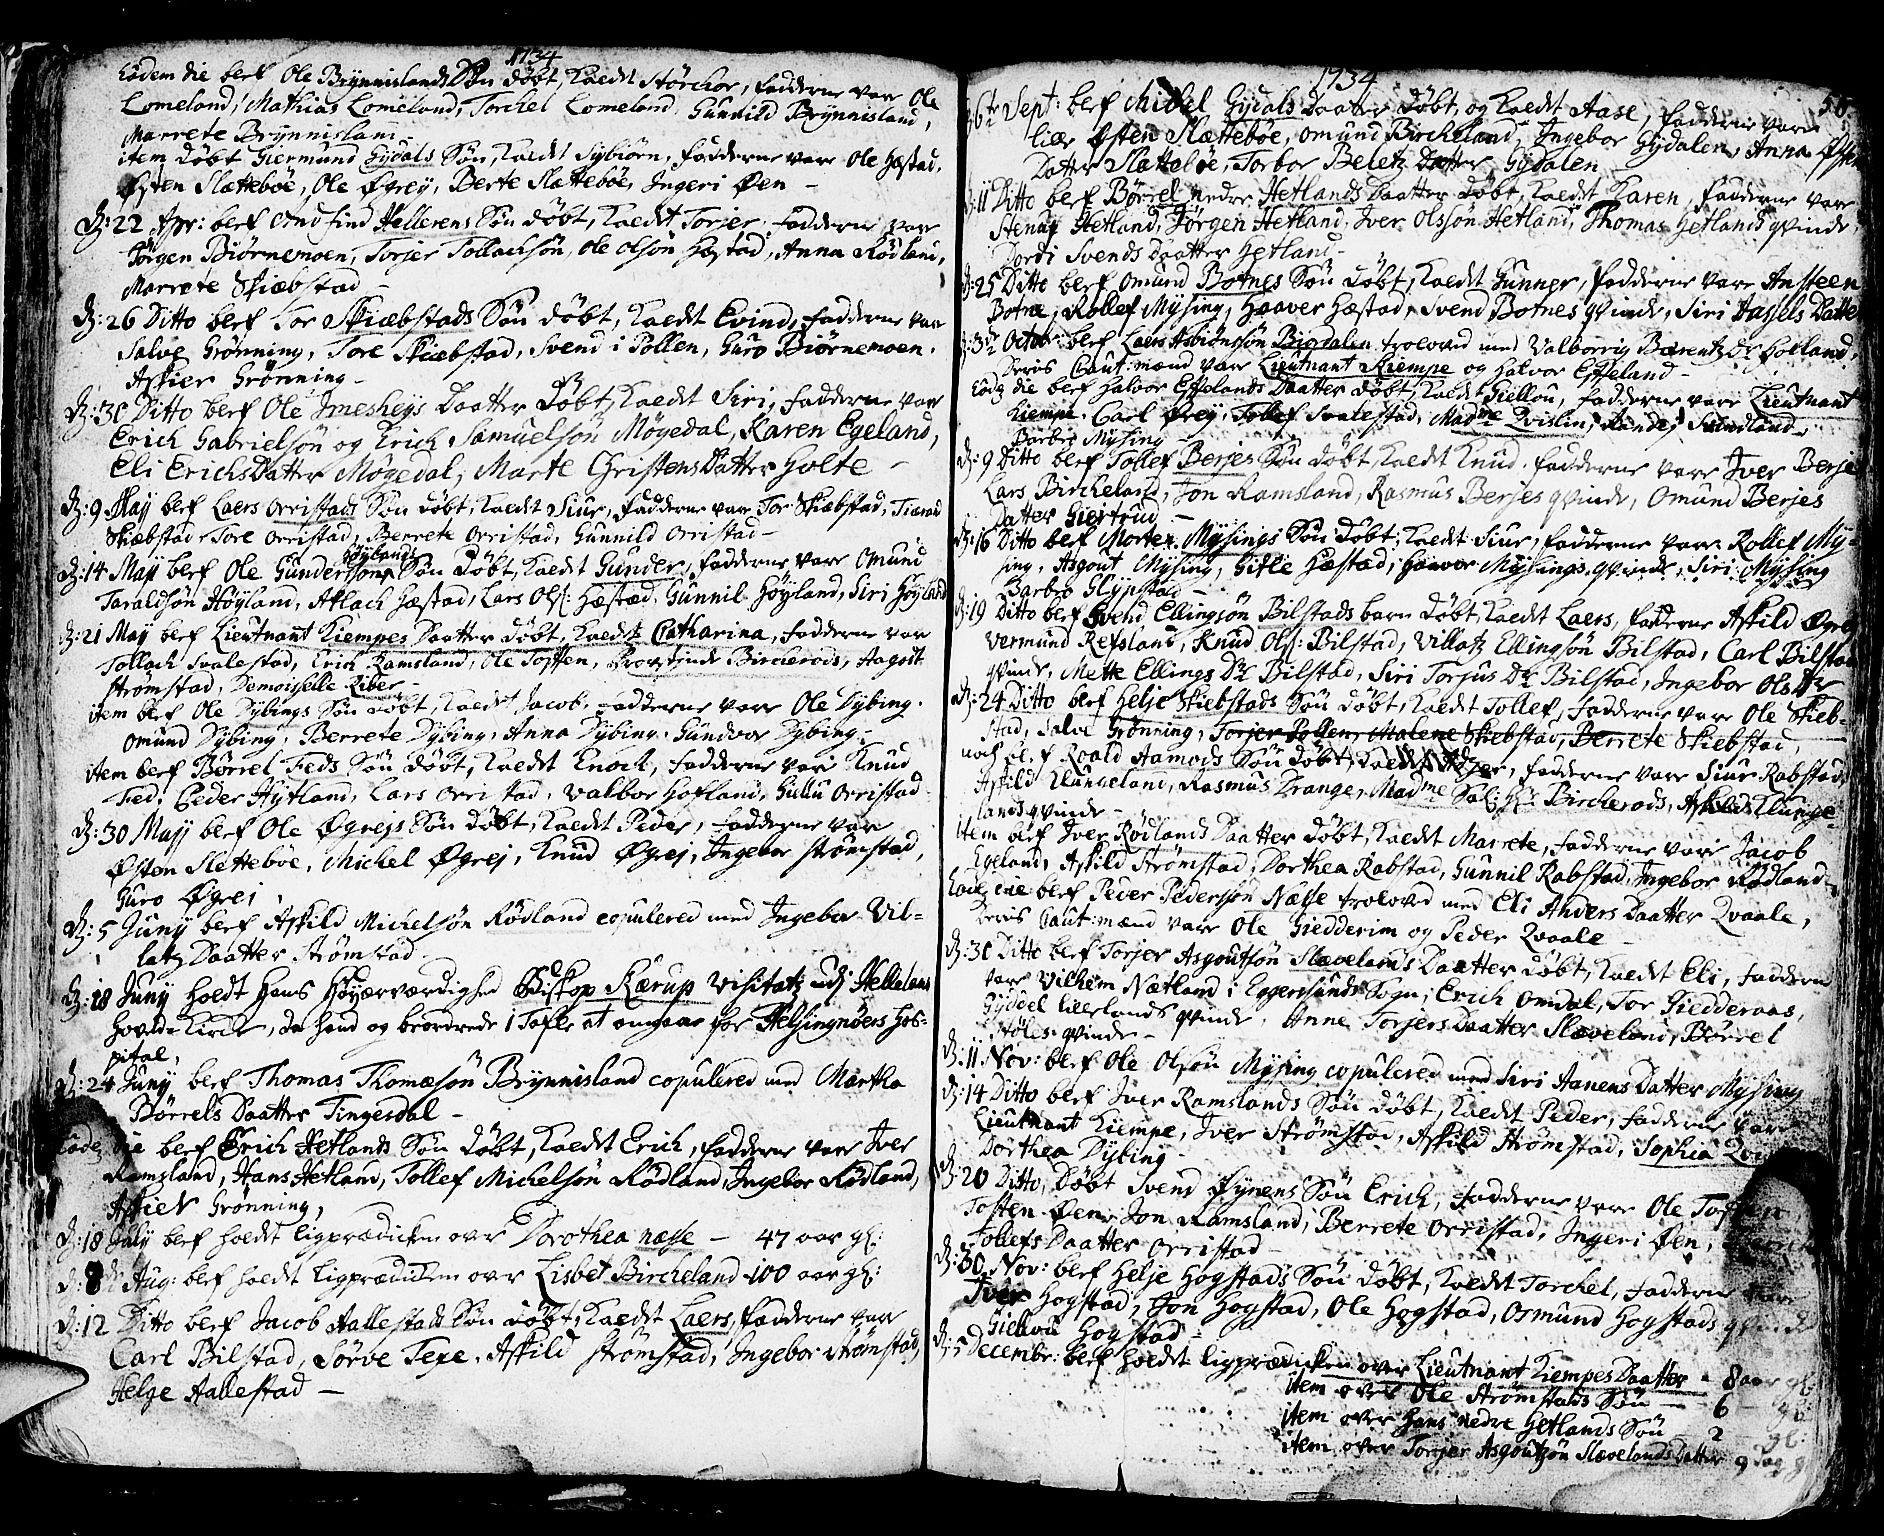 1734
Eodem die blef Ole Brynnislands Søn døbt, Kaldt Størchor, fadderne var Ole
Lomeland, Mathias Lomeland, Torchel Lomeland, Gunnild Brynnisland,
Marrete Brynnisland
item døbt Giermund Gydals Søn, Kaldt Sybiørn, fadderne vare Ole Hæstad,
Østen Slættebøe, Ole Øgrey, Berte Slættebøe, Ingeri Øen –
D: 22 Apr: blef Omdfind Hellerens Søn døbt, Kaldt Torjer, fadderne vare
Jørgen Biørnemoen, Torjer Tollachsøn, Ole Olsøn Hæstad, Anna Rødland,
Marrete Skiæbstad –
D: 26 Ditto blef Tor Skiæbstads Søn døbt, Kaldt Evind, fadderne var
Salve Grønning, Tore Skiæbstad, Svend i Pollen, Guro Biørnemoen,
Askier Grønning –
D: 30 Ditto blef Ole Imesheys Daatter Døbt, Kaldt Siri, fadderne var
Erich Gabrielsøn og Erich Samuelsøn Møgedal, Karen Egeland,
Eli ErichsDatter Møgedal, Marte ChristensDatter Holte –
D: 9 May blef Laers Orristads Søn døbt, Kaldt Siur, fadderne var Tor Skiæbstad,
Skiæbstad, Tore Orristad, Berrete Orristad, Gunnild Orristad –
D: 14 May blef Ole Gundersøns Høylands Søn døbt, Kaldt Gunder, fadderne var Omund
Taraldsøn Høyland, Aslach Hæstad, Lars Ols: Hæstad, Gunnil Høyland, Siri Høyland
D: 21 May blef Lieutnant Kiempes Daatter døbt, Kaldt Catharina, fadderne var
Tollach Svalestad, Erich Ramsland, Ole Toften, Provstinde Bircherods, Aagot
Strømstad, Demoiselle Liber –
item blef Ole Dybings Søn døbt, Kaldt Jacob, fadderne vare Ole Dybing,
Omund Dybing, Berrete Dybing, Anna Dybing, Gundvor Dybing –
item blef Børrel Feds Søn døbt, Kaldt Enoch, fadderne vare Knud
Fed, Peder Hytland, Lars Orristad, Valbor Hofland, Guru Orristad
D: 30 May blef Ole Øgrejs Søn døbt, Kaldt Peder, fadderne var
Østen Slettebøe, Michel Øgrej, Knud Øgrej, Ingebor Strømstad,
Guro Øgrej,
D: 5 Juny blef Askild Michelsøn Rødland copulered med Ingebor Vil=
latz Daatter Strømstad
D: 18 Juny holdt Hans Høyærværdighed Biskop Kærup Visitatz udj Helleland
Hoved Kirche, da hand og beordrede 1 Tafle at omgaae for Helsingnøers Hos=
pital,
D: 24 Juny blef Thomas Thomæsøn Brynnisland copulered med Martha
Børrels Daatter Tingesdal –
Eode die blef Erich Hetlands Søn døbt, Kaldt Erich, fadderne var Iver
Ramsland, Hans Hetland, Tollef Michelsøn Rødland, Ingebor Rødland,
Askier Grønning,
D: 18 July blef holdt ligprædicken over Dorothea Næsse – 47 aar gl:
D: 8 Aug: blef holdt ligprædicken over Lisbet Bircheland – 100 aar gl:
D: 12 Ditto blef Jacob Aallestads Søn døbt, Kaldt Laers, fadderne var
Carl Bilstad, Sørve Texe, Askild Strømstad, Ingebor Strømstad,
Helge Aallestad –
1734
58
Sept: blef Michel Gydals Daatter døbt, og Kaldt Aase, fadderne vare
Østen Slættebøe, Omund Bircheland, Ingebor Gydalen, Anna Østens
Datter Slættebøe, Torbor Beletz Datter Gydalen –
D: 11 Ditto blef Børrel nedre Hetlands Daatter døbt, Kaldt Karen, fadderne vare
Hetland, Jørgen Hetland, Iver Olssøn Hetland, Thomas Hetlands qvinde,
Dordi Svends Daatter Hetland –
D: 25 Ditto blef Omund Botnes Søn døbt, Kaldt Gunner, fadderne vare Ansteen
Botne, Rollef Mysing, Haaver Hæstad, Svend Botnes qvinde, Siri Datter
D: 3 Octob: blef Laers Asbiønssøn Bigdalen trolovd med Valborrig Barentz Dr Hofland,
Deris Caut:mænd vare Lieutnant Kiempe og Halvor Esseland –
Eode die blef Halvor Esselands Daatter døbt, Kaldt Giellou, fadderne vare Lieutnant
Kiempe, Carl Ørej, Tollef Svalestad, Madme Qvislin, Rande Svindland,
Barbro Mysing –
D: 9 Ditto blef Tollef Berjes Søn døbt, Kaldt Knud, fadderne vare Iver Berje
Lars Bircheland, Jon Ramsland, Rasmus Berjes qvinde, Omund Berjes
Datter Giertrud –
D: 16 Ditto blef Morten Mysings Søn døbt, Kaldt Siur, fadderne vare Rollef My=
sing, Asgout Mysing, Gisle Hæstad, Haavor Mysings qvinde, Siri Mysing
Barbro Glypstad –
D: 19 Ditto blef Svend Ellingsøn Bilstads barn døbt, Kaldt Laers, fadderne Askild Øgrej
Vermund Refsland, Knud Ols: Bilstad, Villatz Ellingsøn Bilstad, Carl Bilstad
qvinde, Mette Ellings Dr Bilstad, Siri Torjus Dr Bilstad, Ingebor Ols Dr
D: 24 Ditto blef Helje Skiebstads Søn døbt, Kaldt Tollef, fadderne vare Ole Skieb=
stad, Salve Grønning, Torjer Pollen, Malene Skiebstad, Berrete Skiebstad,
noch blef Roald Aamods Søn døbt, Kaldt, fadderne vare Siur Rabstad,
Askild Klungeland, Rasmus Drange, Madme Sal: Hr Bircherods, Askild Klunge=
lands qvinde –
item blef Iver Rødlands Daatter døbt, Kaldt Marrete, fadderne vare Jacob
Egeland, Askild Strømstad, Dorthea Rabstad, Gunnil Rabstad, Ingebor Rødland
Eode die blef Peder Pedersøn Næsse trolovd med Eli Anders Daatter Qvaale,
Deris Caut:mænd vare Ole Giedderim og Peder Qvaale –
D: 30 Ditto blef Torjer Asgoutsøn Slævelands Daatter døbt, Kaldt Eli, faddern
vare Vilhelm Nætland i Eggersunds Sogn, Erich Omdal, Tor Giedderaas,
Gydoel Lieslands qvinde, Anne Torjers Daatter Slæveland, Børrel
qvinde –
D: 11 Nov: blef Ole Olssøn Mysing copulered med Siri Aanens Datter Mysing
D: 14 Ditto blef Iver Ramslands Søn døbt, Kaldt Peder, fadderne vare
Lieutnant Kiempe, Iver Strømstad, Askild Strømstad, Sophia
Dorthea Dybing –
D: 20 Ditto, Døbt Svend Øynens Søn Erich, fadderne vare Ole Toften
Tosten Øen, Jon Ramsland, Berrete Orristad, Ingeri Øen,
Tollefs Daatter Orristad –
D: 30 Nov: blef Helje Hogstads Søn døbt, Kaldt Torchel, fadderne vare
Iver Hogstad, Jon Hogstad, Ole Hogstad, Osmund Hogstads qvinde
Giellvii Hogstad –
D: 5 Decembr: blef holdt ligprædicken over Lieutnant Kiempes Daatter – 8 aar gl:
item over Ole Strømstads Søn – 6 – gl:
item over Hans nedre Hetlands Søn 2 gl:
item over Torjer Asgoutsøn Slævelands Datter 9 dag g